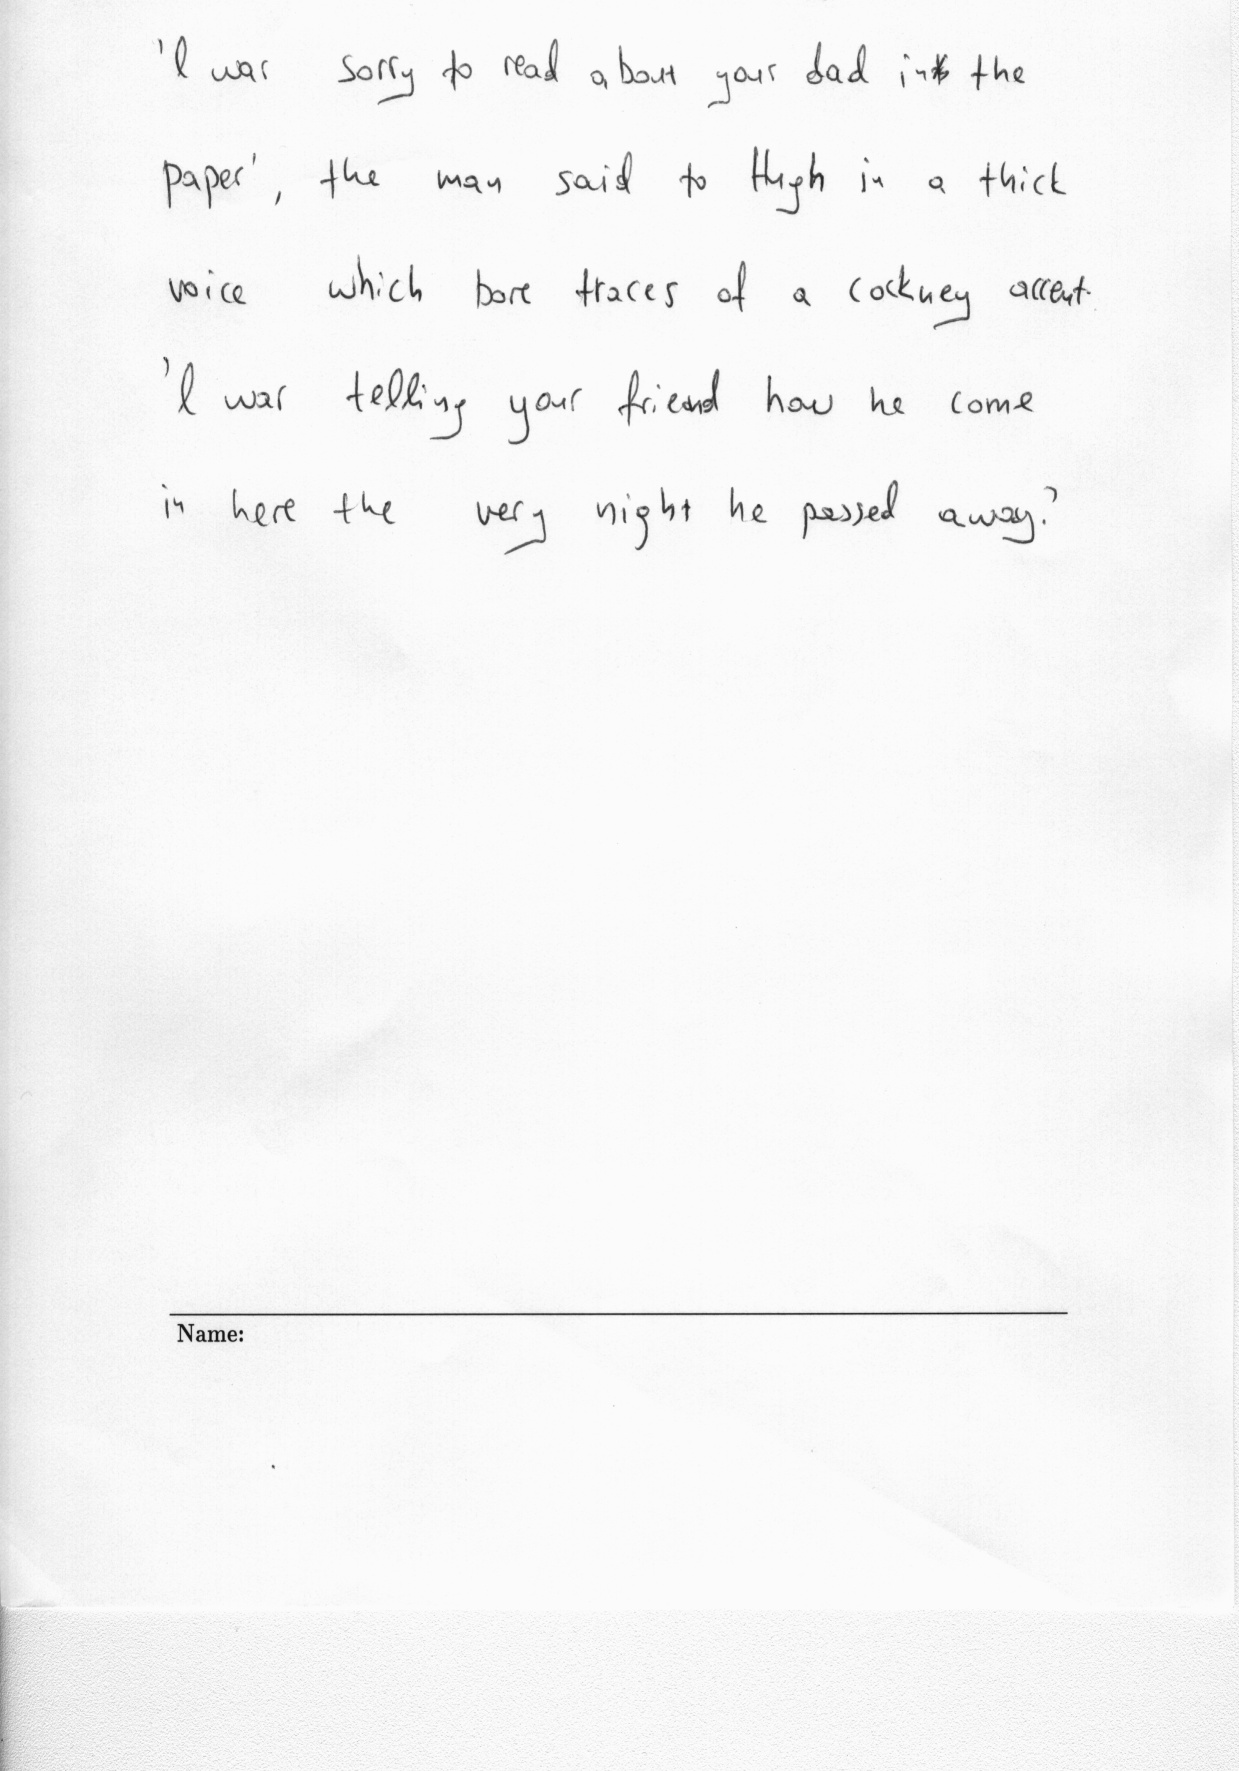 'I was sorry to read about your dad in the
paper', the man said to Hugh in a thick
voice which bore traces of a cockney accent.
'I was telling your friend how he come
in here the very night he passed away.'
Name: